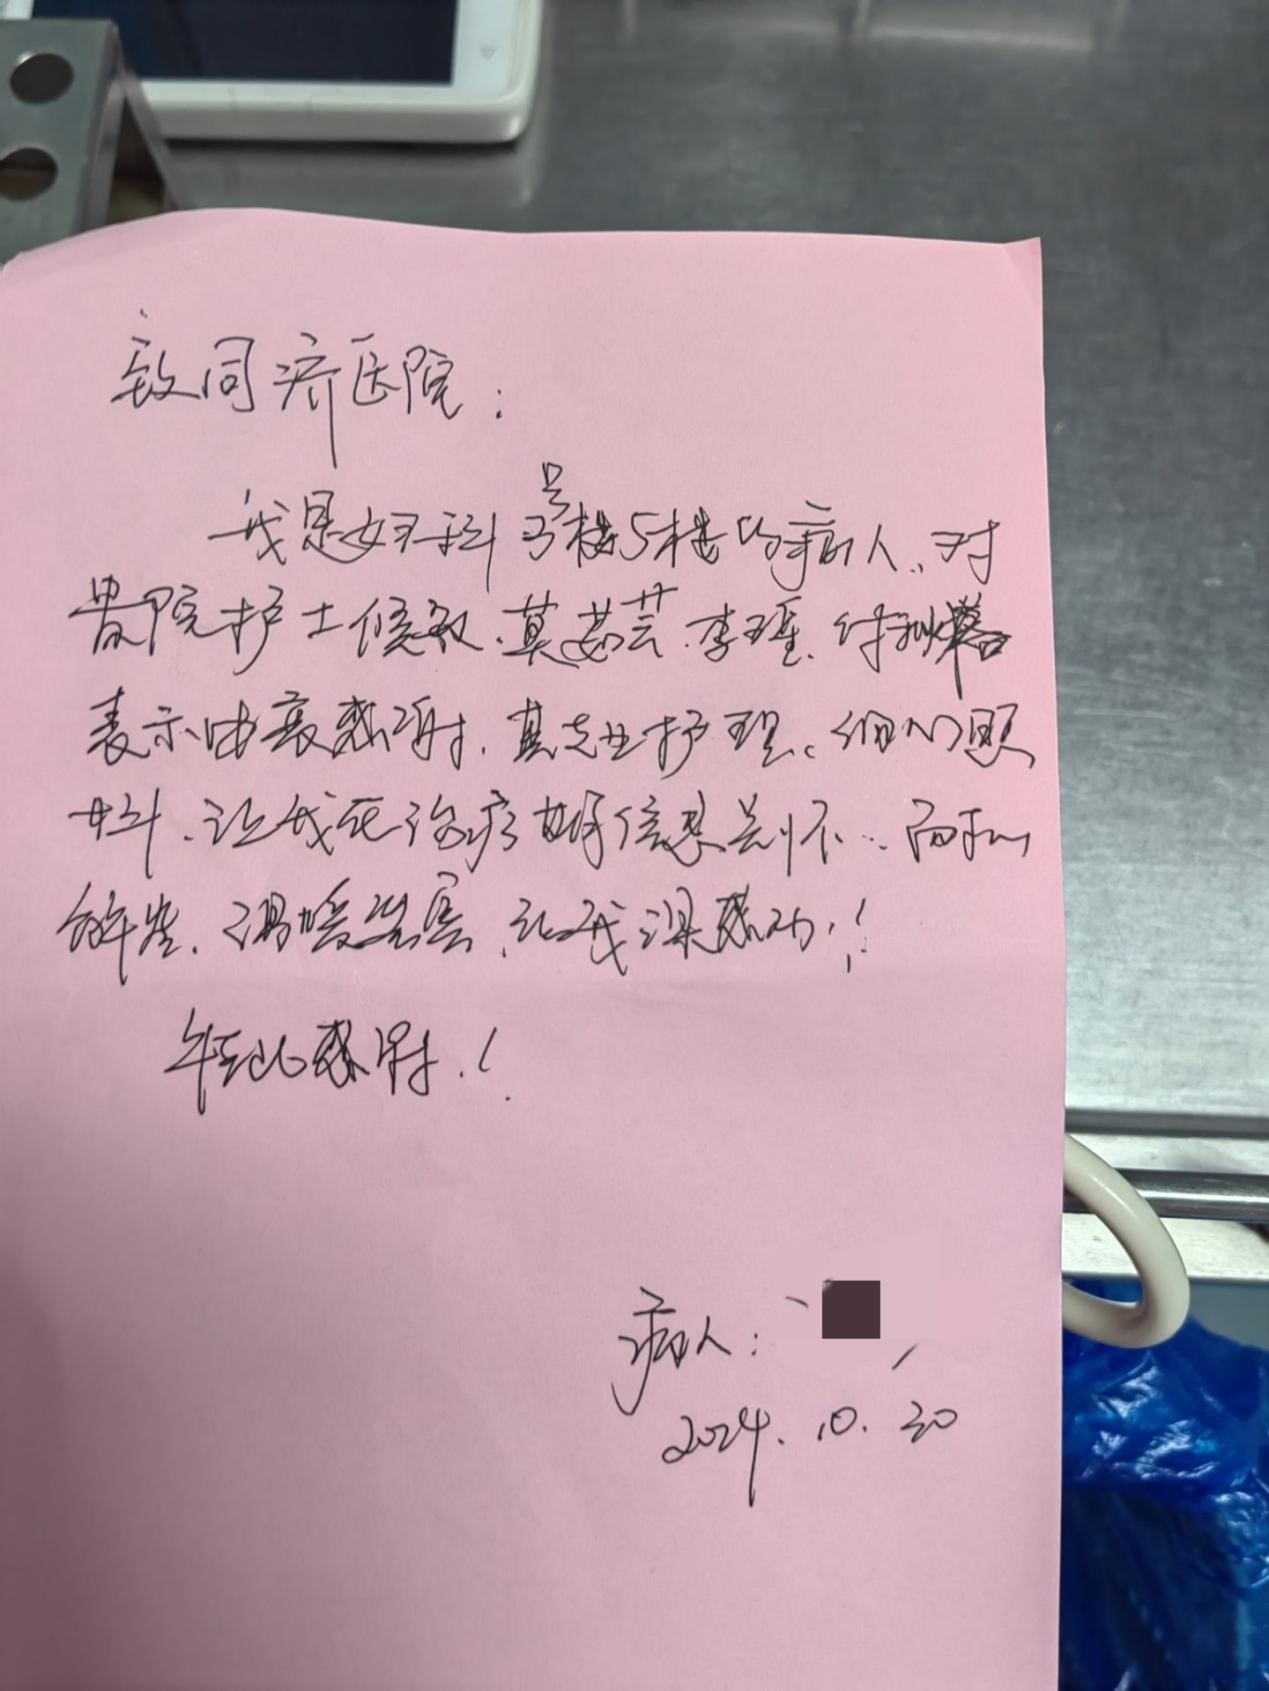 致同济医院:
我是妇科3号楼5楼的病人,对
贵院护士侯敏、莫茹芸、李瑾、付
表示由衷感谢,其专业护理、细心照
料、让我在治疗期信息关怀、而和
解答,温暖,让我深感动!
在此感谢!
病人:
2024.10.20